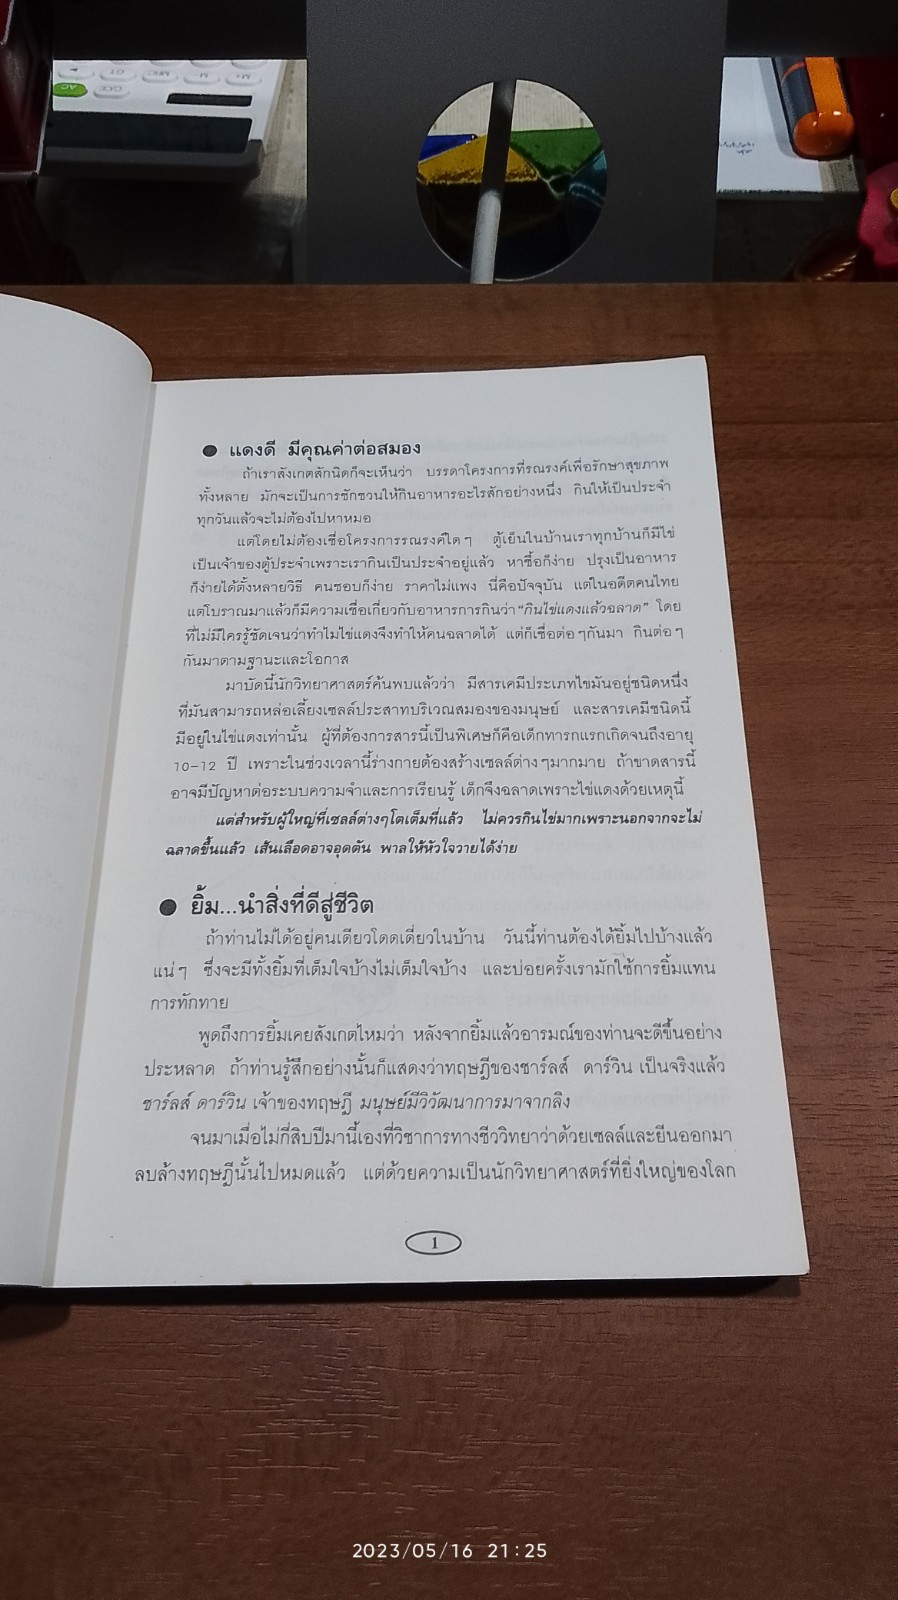 M+
M-
MRC
GT
AC
C/CE
● แดงดี มีคุณค่าต่อสมอง
ถ้าเราสังเกตสักนิดก็จะเห็นว่า บรรดาโครงการที่รณรงค์เพื่อรักษาสุขภาพ
ทั้งหลาย มักจะเป็นการชักชวนให้กินอาหารอะไรสักอย่างหนึ่ง กินให้เป็นประจำ
ทุกวันแล้วจะไม่ต้องไปหาหมอ
แต่โดยไม่ต้องเชื่อโครงการรณรงค์ใดๆ ตู้เย็นในบ้านเราทุกบ้านก็มีไข่
เป็นเจ้าของตู้ประจำเพราะเรากินเป็นประจำอยู่แล้ว หาซื้อก็ง่าย ปรุงเป็นอาหาร
ก็ง่ายได้ตั้งหลายวิธี คนชอบก็ง่าย ราคาไม่แพง นี่คือปัจจุบัน แต่ในอดีตคนไทย
แต่โบราณมาแล้วก็มีความเชื่อเกี่ยวกับอาหารการกินว่า “กินไข่แดงแล้วฉลาด” โดย
ที่ไม่มีใครรู้ชัดเจนว่าทำไมไข่แดงจึงทำให้คนฉลาดได้ แต่ก็เชื่อต่อๆกันมา กินต่อๆ
กันมาตามฐานะและโอกาส
มาบัดนี้นักวิทยาศาสตร์ค้นพบแล้วว่า มีสารเคมีประเภทไขมันอยู่ชนิดหนึ่ง
ที่มันสามารถหล่อเลี้ยงเซลล์ประสาทบริเวณสมองของมนุษย์ และสารเคมีชนิดนี้
มีอยู่ในไข่แดงเท่านั้น ผู้ที่ต้องการสารนี้เป็นพิเศษก็คือเด็กทารกแรกเกิดจนถึงอายุ
10-12 ปี เพราะในช่วงเวลานี้ร่างกายต้องสร้างเซลล์ต่างๆมากมาย ถ้าขาดสารนี้
อาจมีปัญหาต่อระบบความจำและการเรียนรู้ เด็กจึงฉลาดเพราะไข่แดงด้วยเหตุนี้
แต่สำหรับผู้ใหญ่ที่เซลล์ต่างๆโตเต็มที่แล้ว ไม่ควรกินไข่มากเพราะนอกจากจะไม่
ฉลาดขึ้นแล้ว เส้นเลือดอาจอุดตัน พาลให้หัวใจวายได้ง่าย
● ยิ้ม...นำสิ่งที่ดีสู่ชีวิต
ถ้าท่านไม่ได้อยู่คนเดียวโดดเดี่ยวในบ้าน วันนี้ท่านต้องได้ยิ้มไปบ้างแล้ว
แน่ๆ ซึ่งจะมีทั้งยิ้มที่เต็มใจบ้างไม่เต็มใจบ้าง และบ่อยครั้งเรามักใช้การยิ้มแทน
การทักทาย
พูดถึงการยิ้มเคยสังเกตไหมว่า หลังจากยิ้มแล้วอารมณ์ของท่านจะดีขึ้นอย่าง
ประหลาด ถ้าท่านรู้สึกอย่างนั้นก็แสดงว่าทฤษฎีของชาร์ลส์ ดาร์วิน เป็นจริงแล้ว
ชาร์ลส์ ดาร์วิน เจ้าของทฤษฎี มนุษย์มีวิวัฒนาการมาจากลิง
จนมาเมื่อไม่กี่สิบปีมานี้เองที่วิชาการทางชีววิทยาว่าด้วยเซลล์และยีนออกมา
ลบล้างทฤษฎีนั้นไปหมดแล้ว แต่ด้วยความเป็นนักวิทยาศาสตร์ที่ยิ่งใหญ่ของโลก
1
2023/05/16 21:25